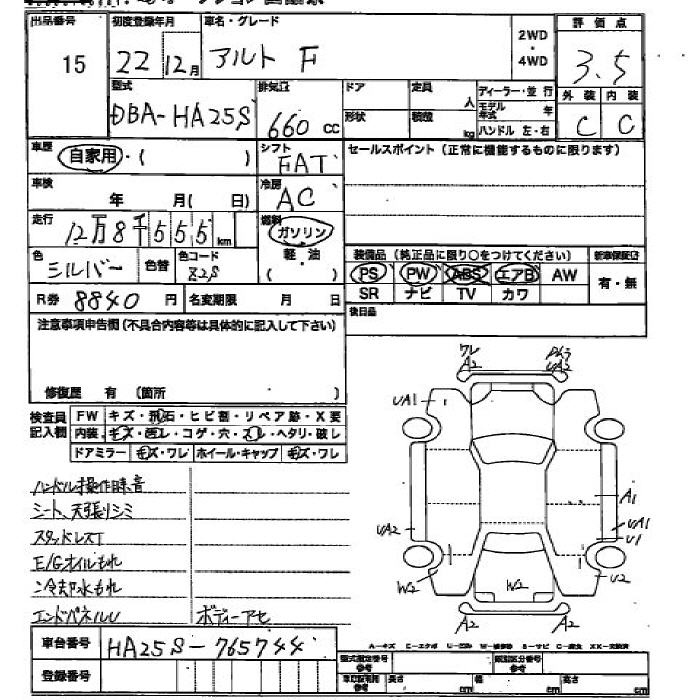 出品番号 初度登録年月 車名・グレード 2WD・4WD 評価点
15 22 12月 アルト F 3.5
型式 排気量 ドア 定員 人 ディーラー・並行 外装 内装
DBA-HA25S 660 CC 形状 積載 kg モデル年式 年 ハンドル 左・右 C C
車歴 自家用・( ) シフト FAT セールスポイント(正常に機能するものに限ります)
車検 年 月( 日) 冷房 AC
走行 12万8千555km 燃料 ガソリン
色 シルバー 色替 色コード Z2S 軽油 ( )
装備品(純正品に限り○をつけてください) 新車保証書
PS PW ABS エアB AW 有・無
SR ナビ TV カワ
R券 8840円 名変期限 月 日 後日品
注意事項申告欄(不具合内容等は具体的に記入して下さい)
修復歴 有 (箇所 )
検査員記入欄 FW キズ・飛石・ヒビ割・リペア跡・X要
内装 キズ・汚レ・コゲ・穴・スレ・ヘタリ・破レ
ドアミラー キズ・ワレ ホイール・キャップ キズ・ワレ
ハンドル操作時音
シート、天張りシミ
スタッドレスT
E/Gオイルもれ
冷却水もれ
エンドパネルU ボディーアセ
ワレ
A2 UA2
UA1
A1
UA2 UA1
U1
W2 W2 U2
A2 A2
車台番号 HA25S-765744
登録番号
A-キズ E-エクボ U-凹み W-補修跡 S-サビ C-腐食 XX-交換済
型式指定番号 参考 類別区分番号 参考
車庫証明用 参考 長さ cm 幅 cm 高さ cm